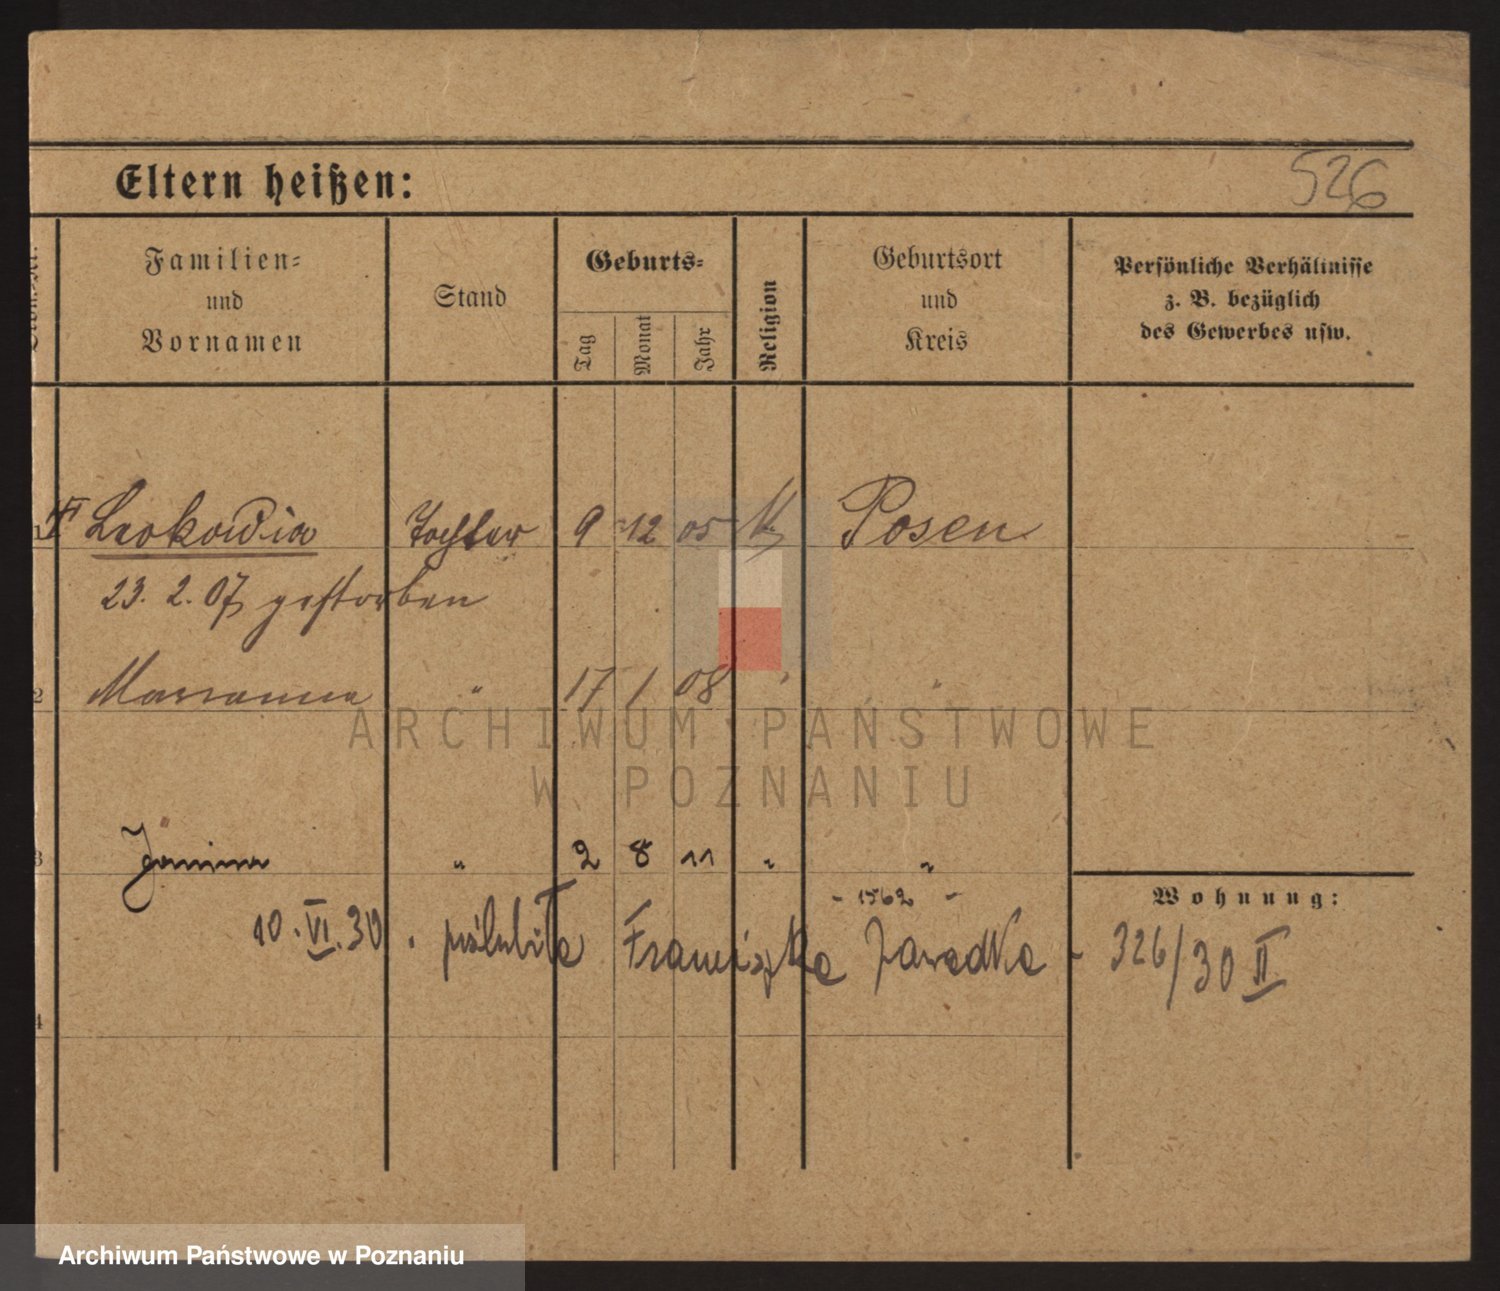 526
Eltern heißen:
Familien-
und
Vornamen
Stand
Geburts-
Tag
Monat
Jahr
Religion
Geburtsort
und
Kreis
Persönliche Verhältnisse
z. B. bezüglich
des Gewerbes usw.
1 Leokadia Tochter 9 12 05 K Posen
23. 2. 07 gestorben
2 Marianna " 17 1 08 " "
ARCHIWUM PAŃSTWOWE
W POZNANIU
3 Janina " 2 8 11 " "
Wohnung:
- 1562 -
10. VI. 30. poślubiła Franciszka Zawadka - 326/30 II
4
Archiwum Państwowe w Poznaniu